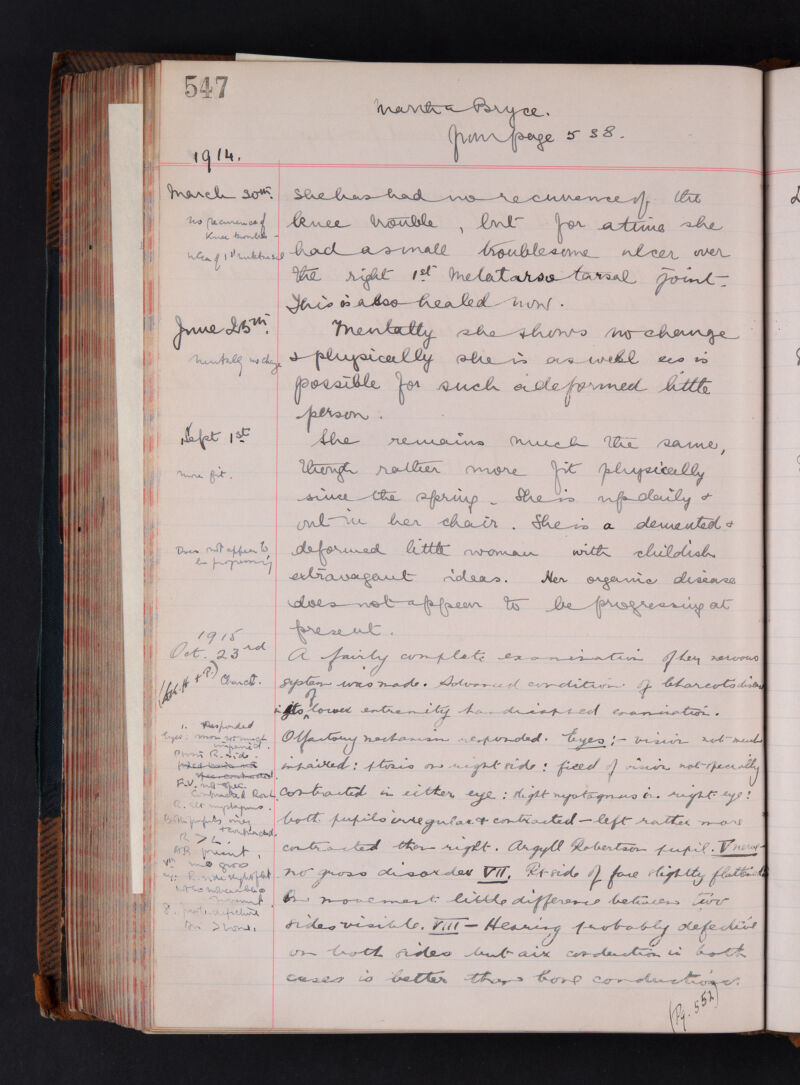 547
Martha Bryce.
from page 538.
1914.
March 30th.
She has had no recurrence of the
No recurrence of
Knee trouble -
knee trouble, but for a time she
Ulcer of 1st metatarsal
had a small troublesome ulcer over
the right 1st Metatarso tarsal joint.
This is also healed now.
June 25th.
Mentally she shows no change
Mentally no change
& physically she is as well as is
possible for such a deformed little
person.
Sept 1st
She remains much the same,
though rather more fit physically
more fit.
since the spring. She is up daily &
out in her chair. She is a demented &
Does not appear to
be progressing
deformed little woman with childish
extravagant ideas. Her organic disease
does not appear to be progressing at
present.
1915
Oct. 23rd
A fairly complete examination of her nervous
Charcot.
system was made. Advanced condition of Charcots disease
in its lower extremity handicapped examination.
1. Responded
Olfactory mechanism responded. Eyes :- vision not much
Eyes: vision not much
impaired.
Ptosis R. side.
impaired : ptosis on right side : field of vision not specially
F.V. not spec.
Contracted
contracted in either eye : slight nystagmus in right eye :
R. slt nystagmus.
Both pupils irreg
& contracted.
both pupils irregular & contracted - left rather more
R > L.
contracted than right. Argyll Robertson pupil. V nerve -
AR present,
Vth no gross
no gross disorder VII. Rt side of face slightly flattened
On movement little difference between two
sides visible. VIII - Hearing probably defective
8. prob. defective
Air > bone,
on both sides but air conduction in both
cases is better than bone conduction.
(Pg. 552)